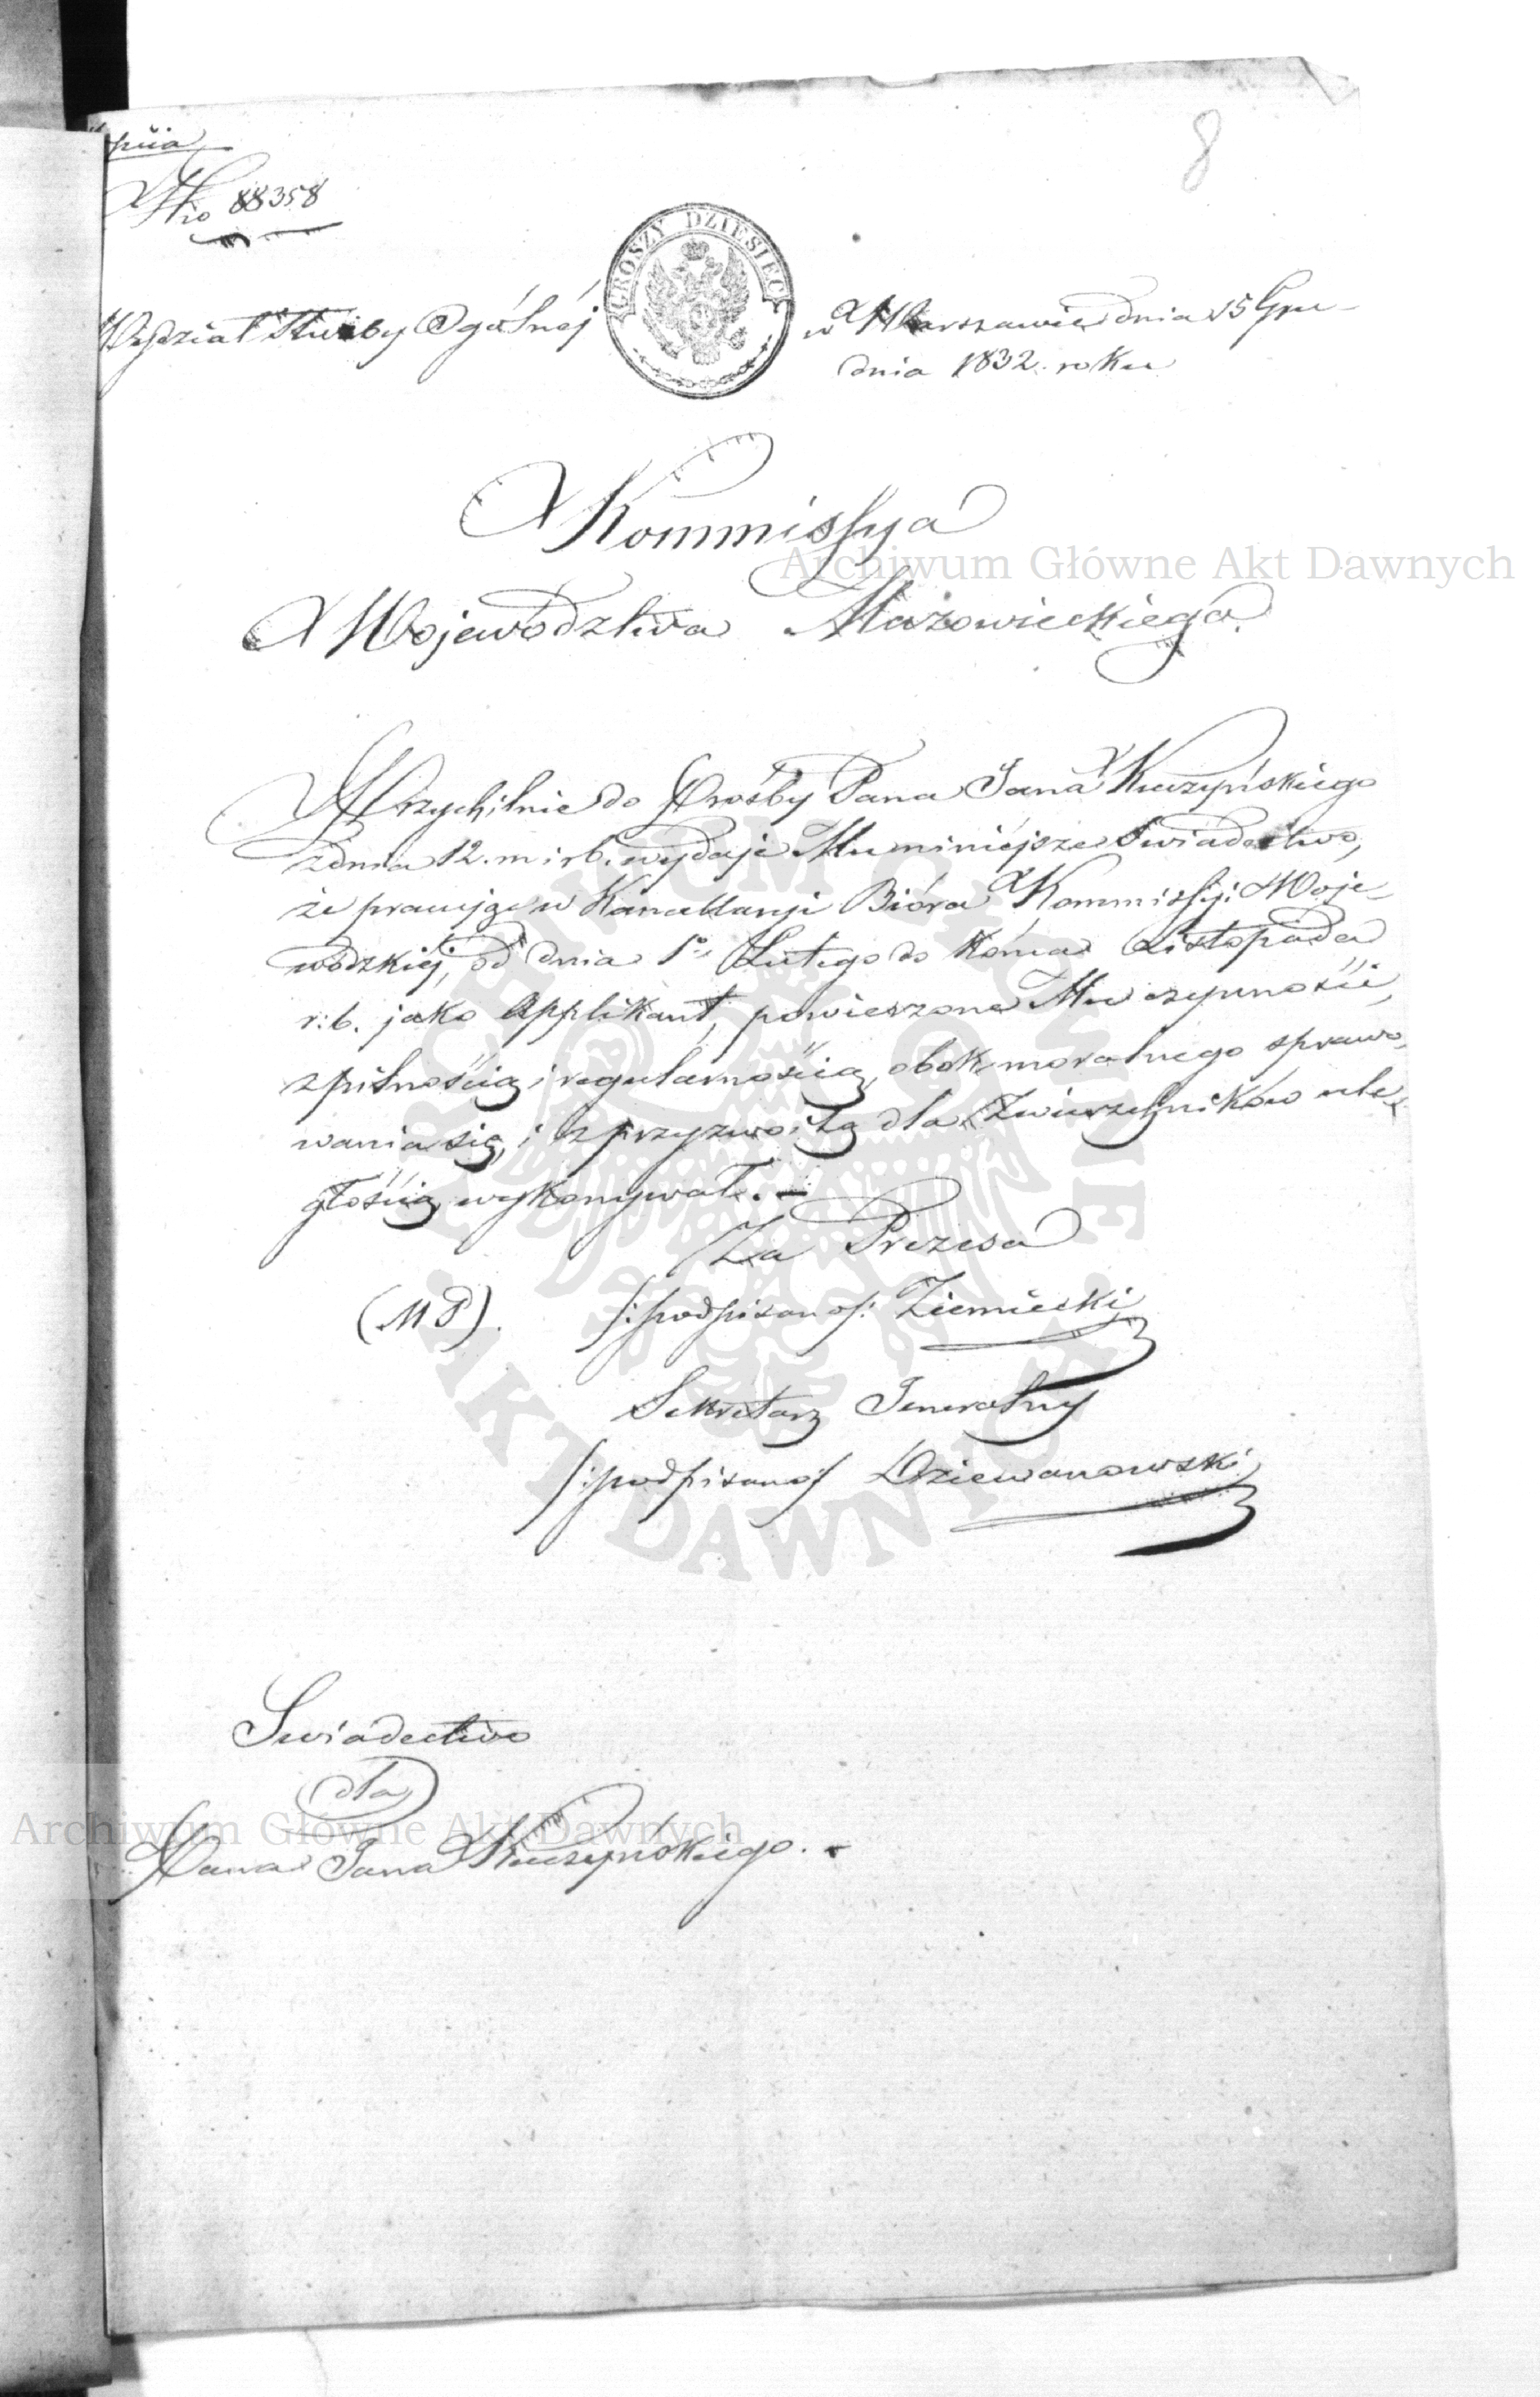 8
Kopiia
Nro 88358
GROSZY DZIESIEC
Wydział Służby Ogólnéj
w Warszawie dnia 15 Gru-
dnia 1832. roku
Kommissya
Województwa Mazowieckiego.
Archiwum Główne Akt Dawnych
Przychilnie do Prośby Pana Jana Kuczyńskiego
z dnia 12. m i r b. wydaje Mu niniéjsze Swiadectwo,
że pracując w Kancellaryi Bióra Kommissyi Woje-
wódzkiéj, od dnia 1o Lutego do Końca Listopada
r: b. jako Applikant, powierzone Mu czynności,
z pilnością i regularnością, obok moralnego sprawo-
wania się, i z przyzwoitą dla Zwierzchników ule-
głością wykonywał. –
Za Prezesa
(M P). /: podpisano /: Ziemiecki
Sekretarz Jeneralny
/: podpisano / Dziewanowski
ARCHIWUM GŁÓWNE AKT DAWNYCH
Swiadectwo
dla
Pana Jana Kuczyńskiego. -
Archiwum Główne Akt Dawnych